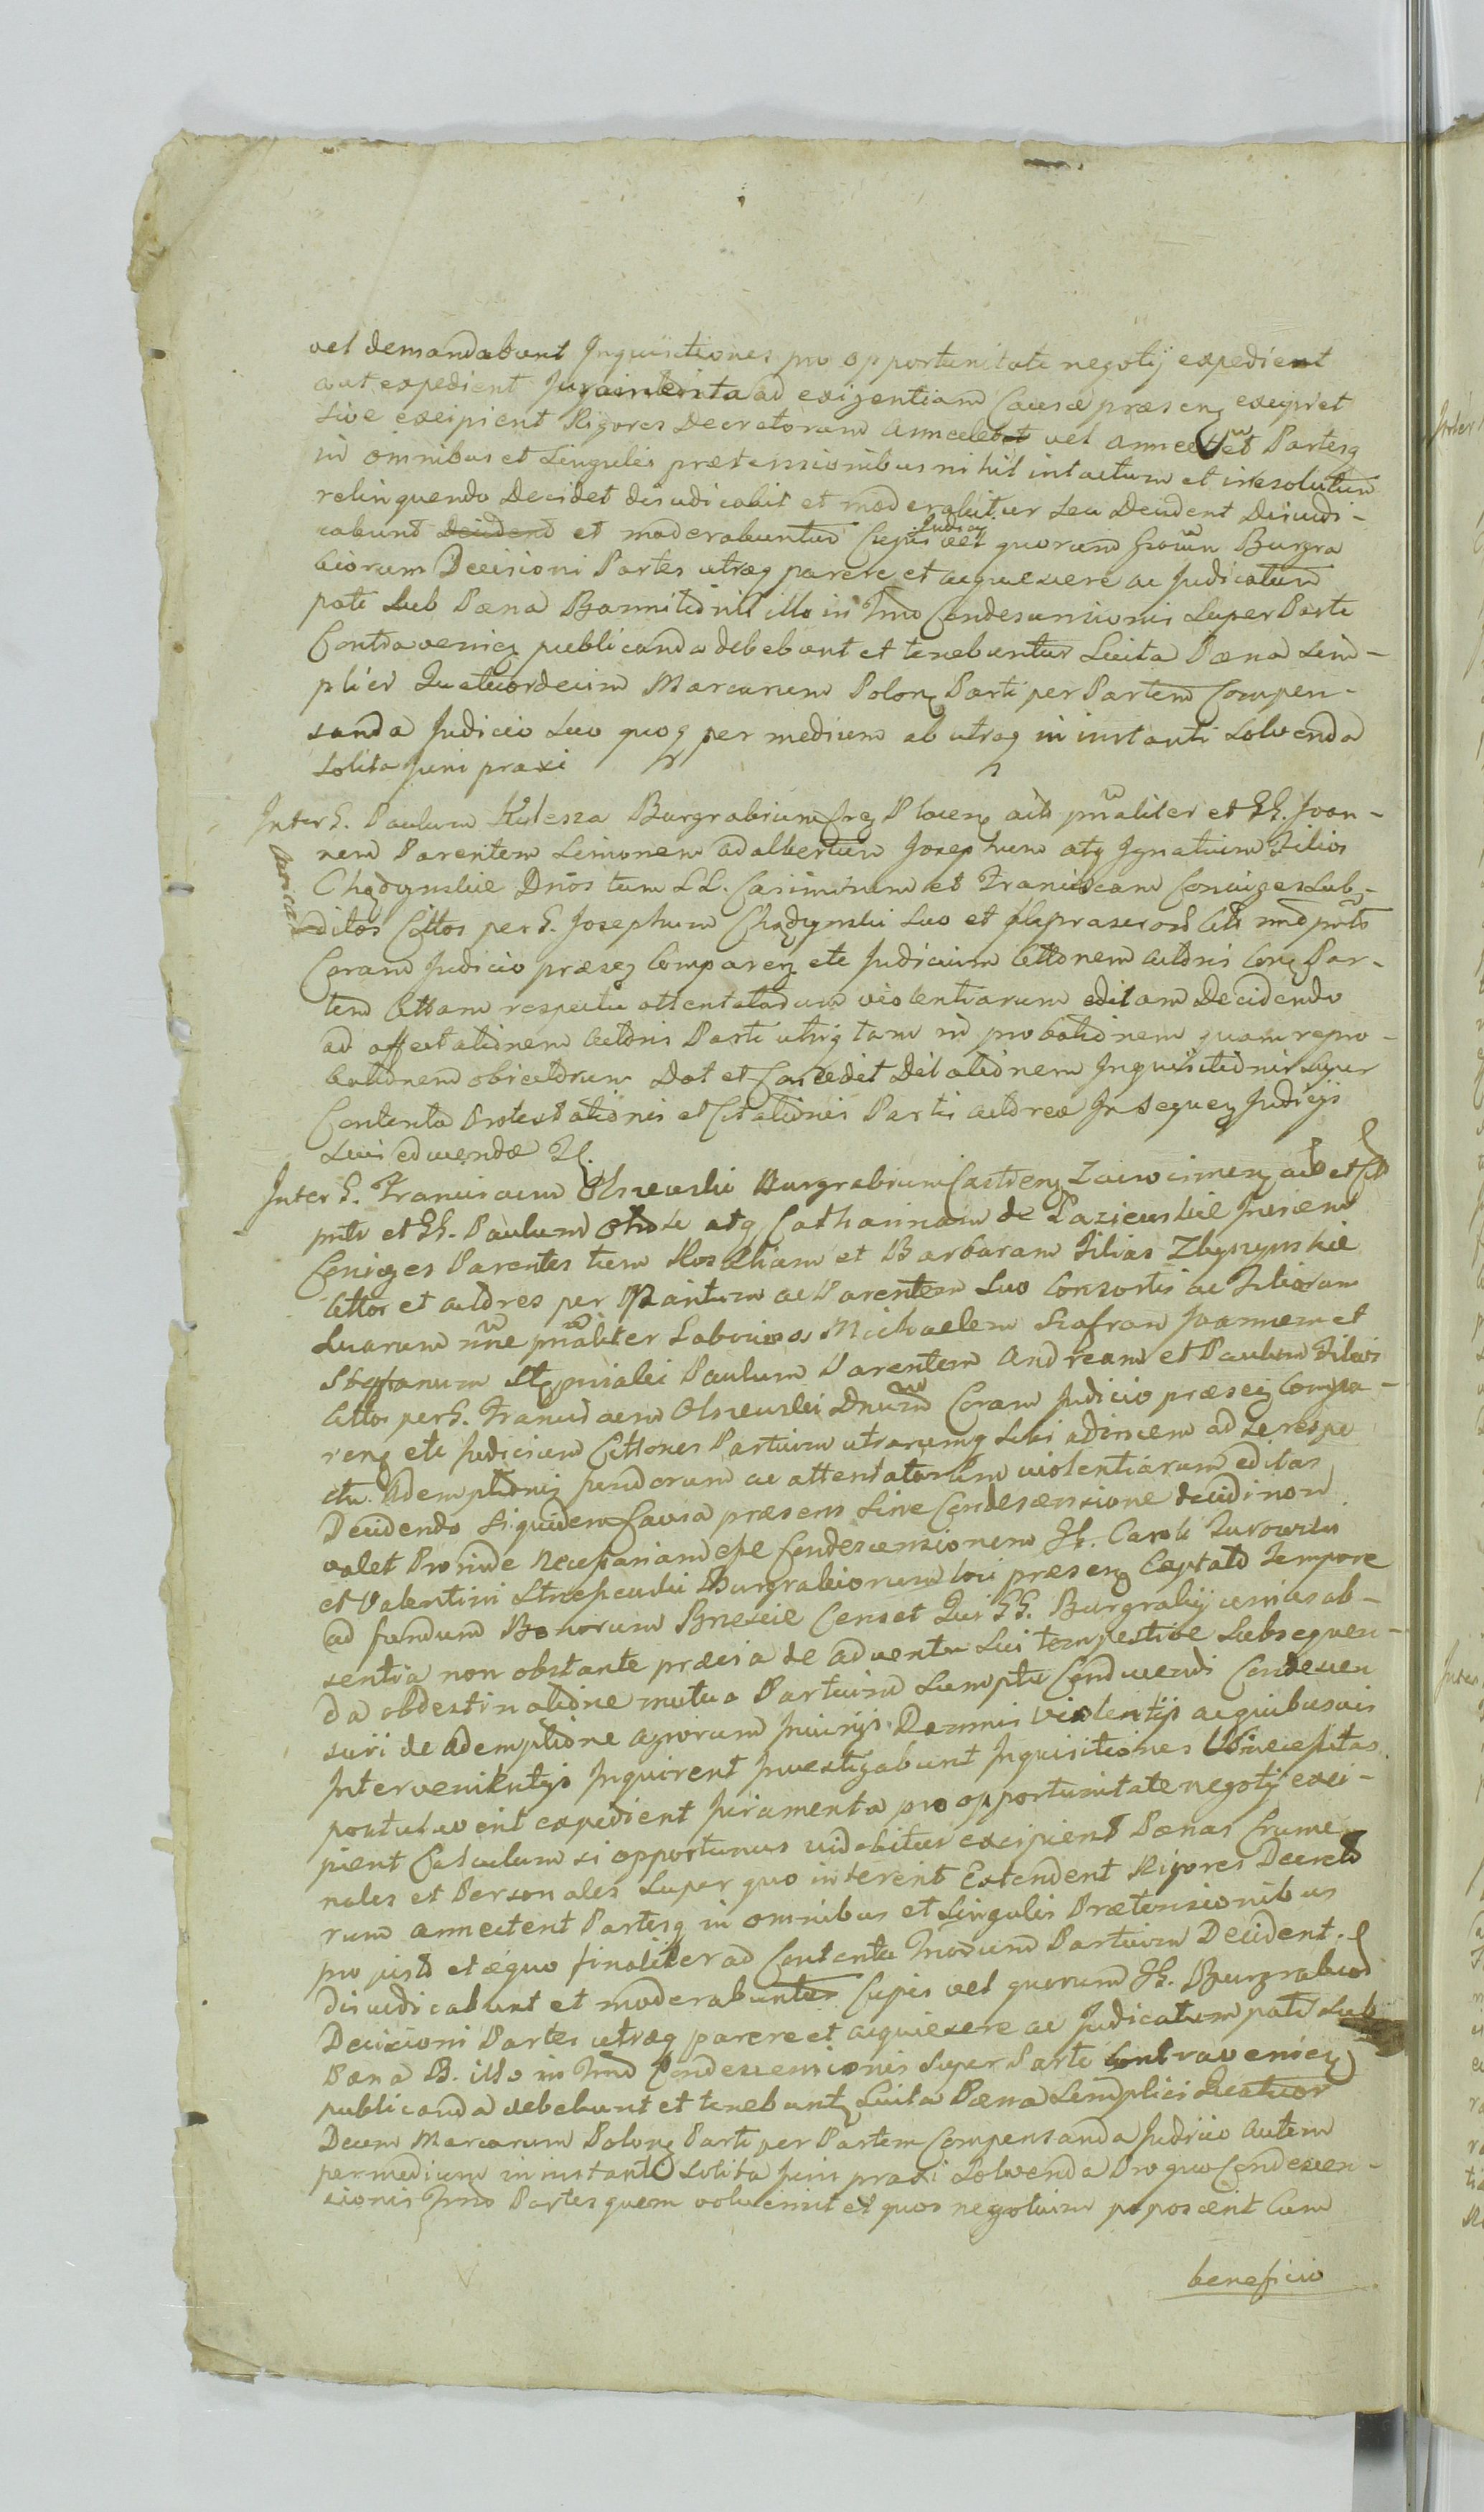 vel demandabunt Inquisitiones pro opportunitate negotij expedient
aut expedient Juramenta ad exigentiam Causæ præsenꝫ excipiet
sive excipient Rigores Decretorum annectet vel annectent Partesꝗ
in omnibus et singulis prætensionibus nihil intactum et irresolutum
relinquendo Decidet dijudicabit et moderabitur seu Decident Dijudi-
cabunt et moderabuntur Cujus vel quorum Burgra
biorum Decisioni Partes utræꝗ parere et acquiescere ac Judicatum
pati sub Pæna Bannitionis illo in Tmo Condescensionis super Parte
Contravenienꝫ publicanda debebunt et tenebuntur Luita Pæna sim-
plici Quatuordecim Marcarum Polonꝫ Parti per Partem Compen-
sanda Judicio suo quoꝗ per medium ab utraꝗ in instanti solvenda
solita juri praxi
Inter G. Paulum Kulesza Burgrabium Plocenꝫ pnaliter et GG. Joan-
nem Parentem Simonem Adalbertum Josephum atꝗ Ignatium Filios
Chądzynskie Dnos tum LL. Casimirum et Franciscam Conjuges sub-
ditos Cittos per G. Josephum Chądzynski suo et
Coram Judicio præsenꝫ Comparenꝫ etc Judicium Cittonem actoris Conꝫ Par-
tem Cittam respectu attentatarum violentiarum editam Decidendo
ad affectationem actoris Parti utriꝗ tam in probationem quam repro-
bationem objectorum Dat et Concedit Dilationem Inquisitionis super
Contenta Protestationis et Citationis Partis actoreæ In sequenꝫ Judicijs
sui educendæ
Inter G. Franciscum Olszewski Burgrabium Castrenꝫ et
et GG. Paulum atꝗ Catharinam de Łazicwskie
Conjuges Parentes tum Rosaliam et Barbaram Filias Zbyszynskie
Cittos et actores per Maritum ac Parentem suo Consortis ac Filiarum
suarum nne pnaliter Laboriosos Michaelem Szafran Joannem et
Stephanum Paulum Parentem Andream et Paulum Filios
Cittos per G. Franciscum Olszewski Dnum Coram Judicio præsenꝫ Compa-
renꝫ etc Judicium Cittones Partium utrarumꝗ sibi adinvicem ad se respe
ctu Ademptionis fundorum ac attentatarum violentiarum editas
Decidendo siquidem Causa præsens sine Condescensione decidi non
valet Proinde necessariam esse Condescensionem GG. Caroli Turowski
et Valentini Burgrabiorum loci præsenꝫ Captato Tempore
ad fundum Bonorum Censet Qui GG. Burgrabij unius ab-
sentia non obstante prævia de adventu sui tempestive subsequen-
da obdestinatione mutuo Partium sumptu Conducendi Condescen
suri de ademptione agrorum Injurijs Damnis violentijs ac quibusvis
Intervenientijs Inquirent Investigabunt Inquisitiones Ubi necessitas
postulaverit expedient Juramenta pro opportunitate negotij exci-
pient Calculum si opportunus videbitur excipient Pænas Crume-
nales et Personales super quo intererit Extendent Rigores Decreto
rum annectent Partesꝗ in omnibus et singulis Prætensionibus
pro justo et æquo finaliter ad Contenta Partium Decident
dijudicabunt et moderabuntur Cujus vel quorum GG. Burgrabiorum
Decisioni Partes utræꝗ parere et acquiescere ac Judicatum pati sub
Pæna B. illo in Tmo Condescensionis super Parte Contravenienꝫ
publicanda debebunt et tenebuntꝫ Luita Pæna simplici Quatuor
Decem Marcarum Polonꝫ Parti per Partem Compensanda Judicio autem
per medium in instanti solita juri praxi solvenda Pro quo Condescen-
sionis Tmo Partes quem voluerint et quos negotium poposcerit Cum
beneficio